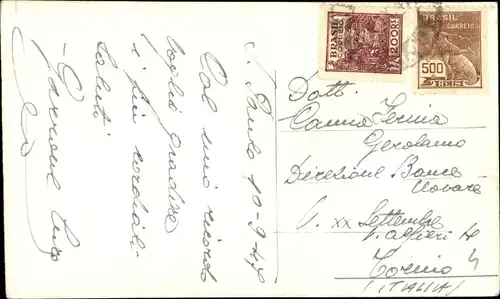 S. Paulo 10-9-47
Col mio ricordo
voglia gradire
i più cordiali
saluti
BRASIL
CORREIO
200 RS
BRASIL
CORREIO
500
REIS
Dott.
Gerolamo
Direzione Banca
Novara
V. XX Settembre
V. Alfieri 14
Torino
(ITALIA)